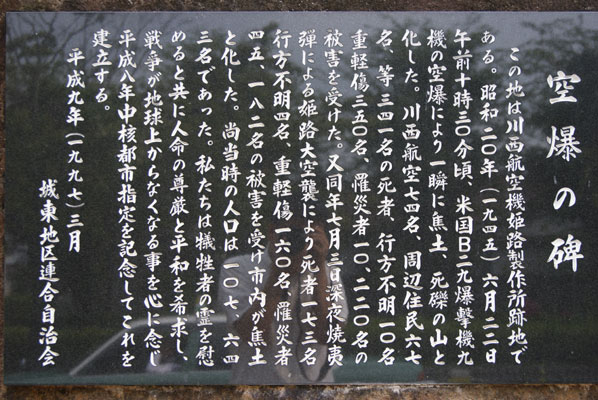 空爆の碑
この地は川西航空機姫路製作所跡地で
ある。昭和二〇年（一九四五）六月二二日
午前十時三〇分頃、米国B二九爆撃機九
機の空爆により一瞬に焦土、死礫の山と
化した。川西航空七四名、周辺住民六七
名、等三四一名の死者、行方不明一〇名
重軽傷三五〇名、罹災者一〇、二二〇名の
被害を受けた。又同年七月三日深夜焼夷
弾による姫路大空襲により死者一七三名
行方不明四名、重軽傷一六〇名、罹災者
四五、一八二名の被害を受け市内が焦土
と化した。尚当時の人口は一〇七、六四
三名であった。私たちは犠牲者の霊を慰
めると共に人命の尊厳と平和を希求し、
戦争が地球上からなくなる事を心に念じ
平成八年中核都市指定を記念してこれを
建立する。
平成九年（一九九七）三月
城東地区連合自治会